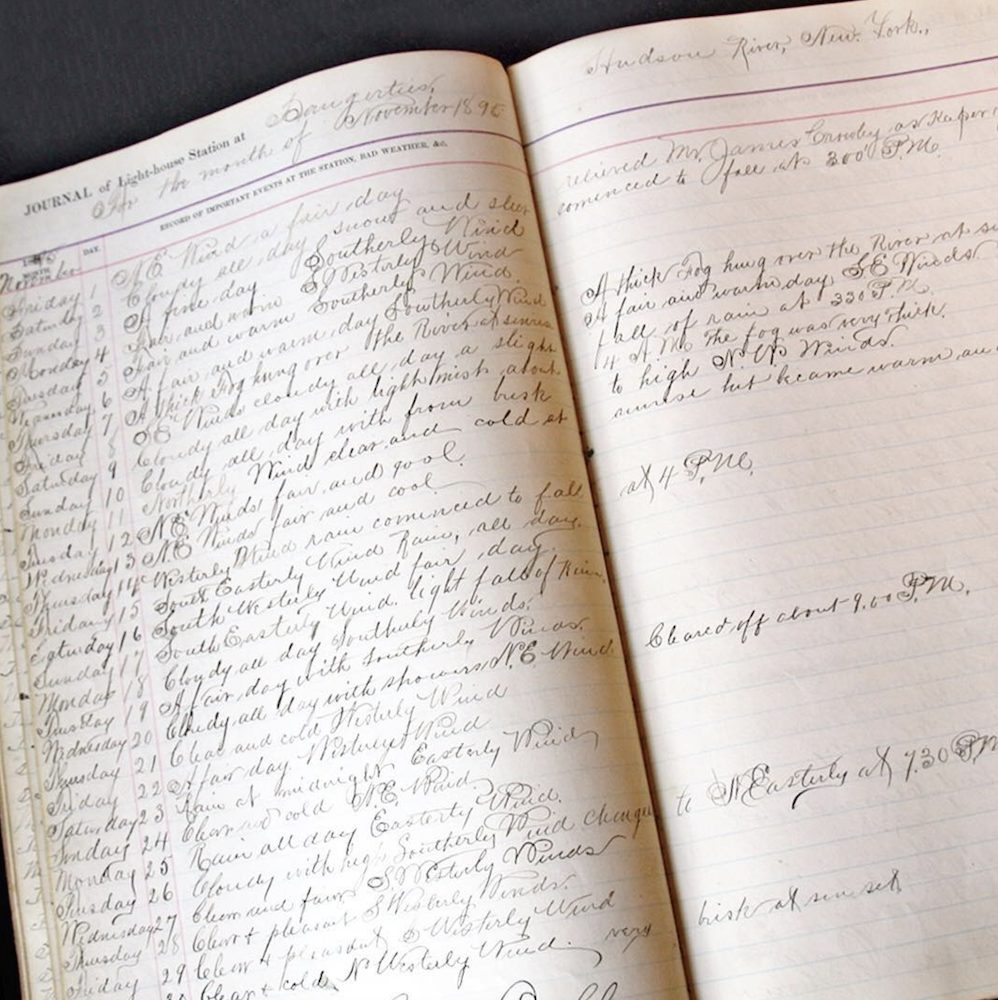 JOURNAL of Light-house Station at Saugerties,
For the month of November 1895
RECORD OF IMPORTANT EVENTS AT THE STATION, BAD WEATHER, &c.
MONTH. DAY.
November
Friday 1 N.E. Wind a fair day
Saturday 2 Cloudy all day snow and sleet
Sunday 3 A fine day Southerly Wind
Monday 4 Fair and warm S. Westerly Wind
Tuesday 5 Fair and warm Southerly Wind
Wednesday 6 A fair and warm day Southerly Wind
Thursday 7 A thick Fog hung over the River at sunrise
Friday 8 S.E. Winds cloudy all day a slight
Saturday 9 Cloudy all day with light mist about
Sunday 10 Cloudy all day with from brisk
Monday 11 Northerly Wind clear and cold at
Tuesday 12 N.E. Winds fair and cool
Wednesday 13 N.E. Winds fair and cool
Thursday 14 Westerly Wind rain comenced to fall
Friday 15 South Easterly Wind Rain, all day.
Saturday 16 South Westerly Wind fair day.
Sunday 17 South Easterly Wind. light fall of Rain.
Monday 18 Cloudy all day Southerly Winds.
Tuesday 19 A fair day with Southerly Winds.
Wednesday 20 Cloudy all day with showers N.E. Wind
Thursday 21 Clear and cold Westerly Wind
Friday 22 A fair day. Westerly Wind
Saturday 23 Rain at midnight Easterly Wind
Sunday 24 Clear and cold N.E. Wind.
Monday 25 Rain all day Easterly Wind.
Tuesday 26 Cloudy with Southerly Wind changing
Wednesday 27 Clear and fair S. Westerly Winds
Thursday 28 Clear & pleasant S Westerly Winds.
Friday 29 Clear & pleasant S Westerly Wind
30 Clear & cold N Westerly Wind. very
Hudson River, New York.,
relieved Mr. James Crowley as Keeper
comenced to fall at 300 P.M.
A thick Fog hung over the River at
A fair and warm day S.E. Winds
fall of rain at 330 P.M.
4 A.M. the fog was very thick.
to high N.W. Winds.
sunrise but became warm
at 4 P.M.
Cleared off about 9.00 P.M.
to N. Easterly at 7.30 P.M
brisk at sun set